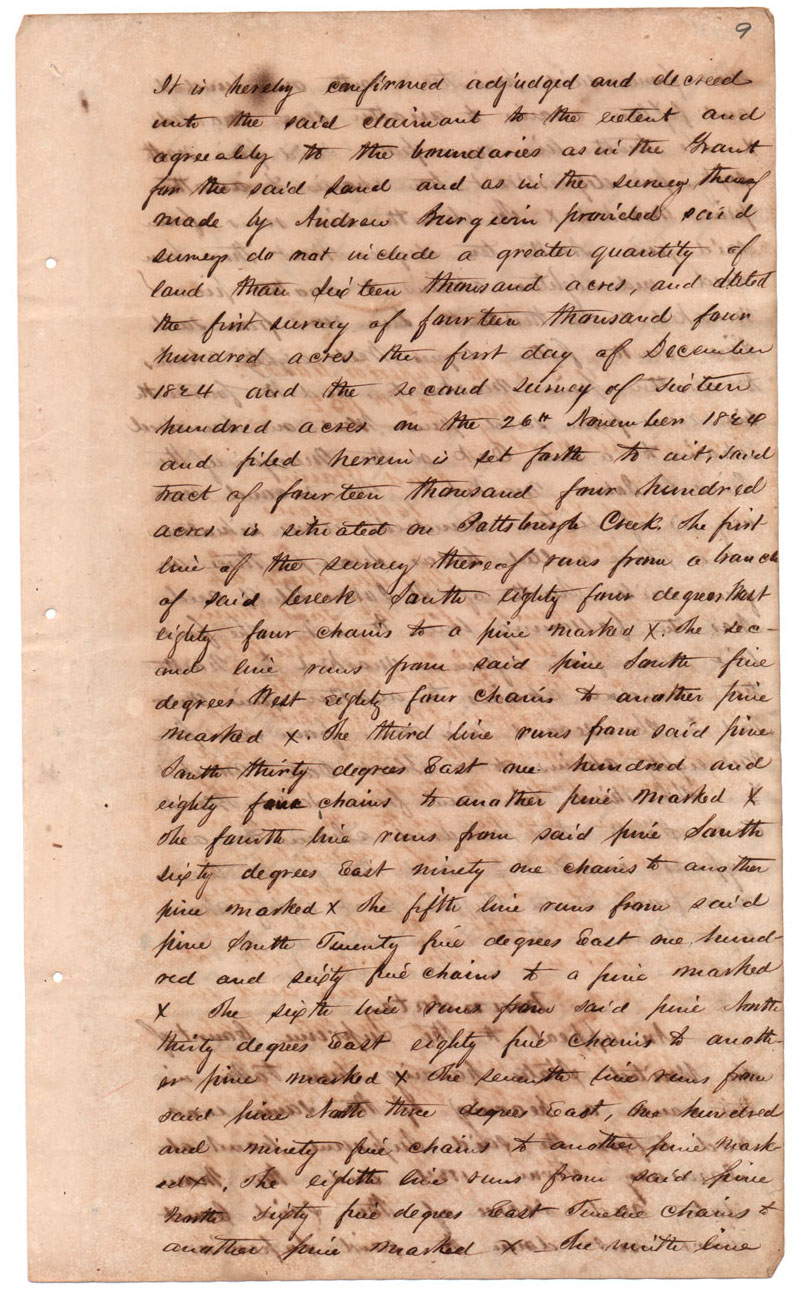 9
It is hereby confirmed adjudged and decreed
unto the said claimant to the extent and
agreeably to the boundaries as in the Grant
for the said Land and as in the survey thereof
made by Andrew Burgevin provided said
surveys do not include a greater quantity of
land than Sixteen thousand acres, and dated
the first survey of fourteen thousand four
hundred acres the first day of December
1824 and the second survey of sixteen
hundred acres on the 26th November 1824
and filed herein is set forth to wit, said
tract of fourteen thousand four hundred
acres is situated on Pattsburgh Creek. The first
line of the survey thereof runs from a branch
of said Creek South eighty four degrees West
eighty four chains to a pine marked X. The sec-
ond line runs from said pine South five
degrees West eighty four chains to another pine
marked X. The third line runs from said pine
South thirty degrees East one hundred and
eighty five chains to another pine marked X
The fourth line runs from said pine South
sixty degrees East ninety one chains to another
pine marked X The fifth line runs from said
pine South Twenty five degrees East one hund-
red and sixty five chains to a pine marked
X The sixth line runs from said pine North
thirty degrees East eighty five chains to anoth-
er pine marked X The seventh line runs from
said pine North three degrees East, One hundred
and ninety five chains to another pine mark-
ed X. The eighth line runs from said pine
North Sixty five degrees East Twelve chains to
another pine marked X - The ninth line